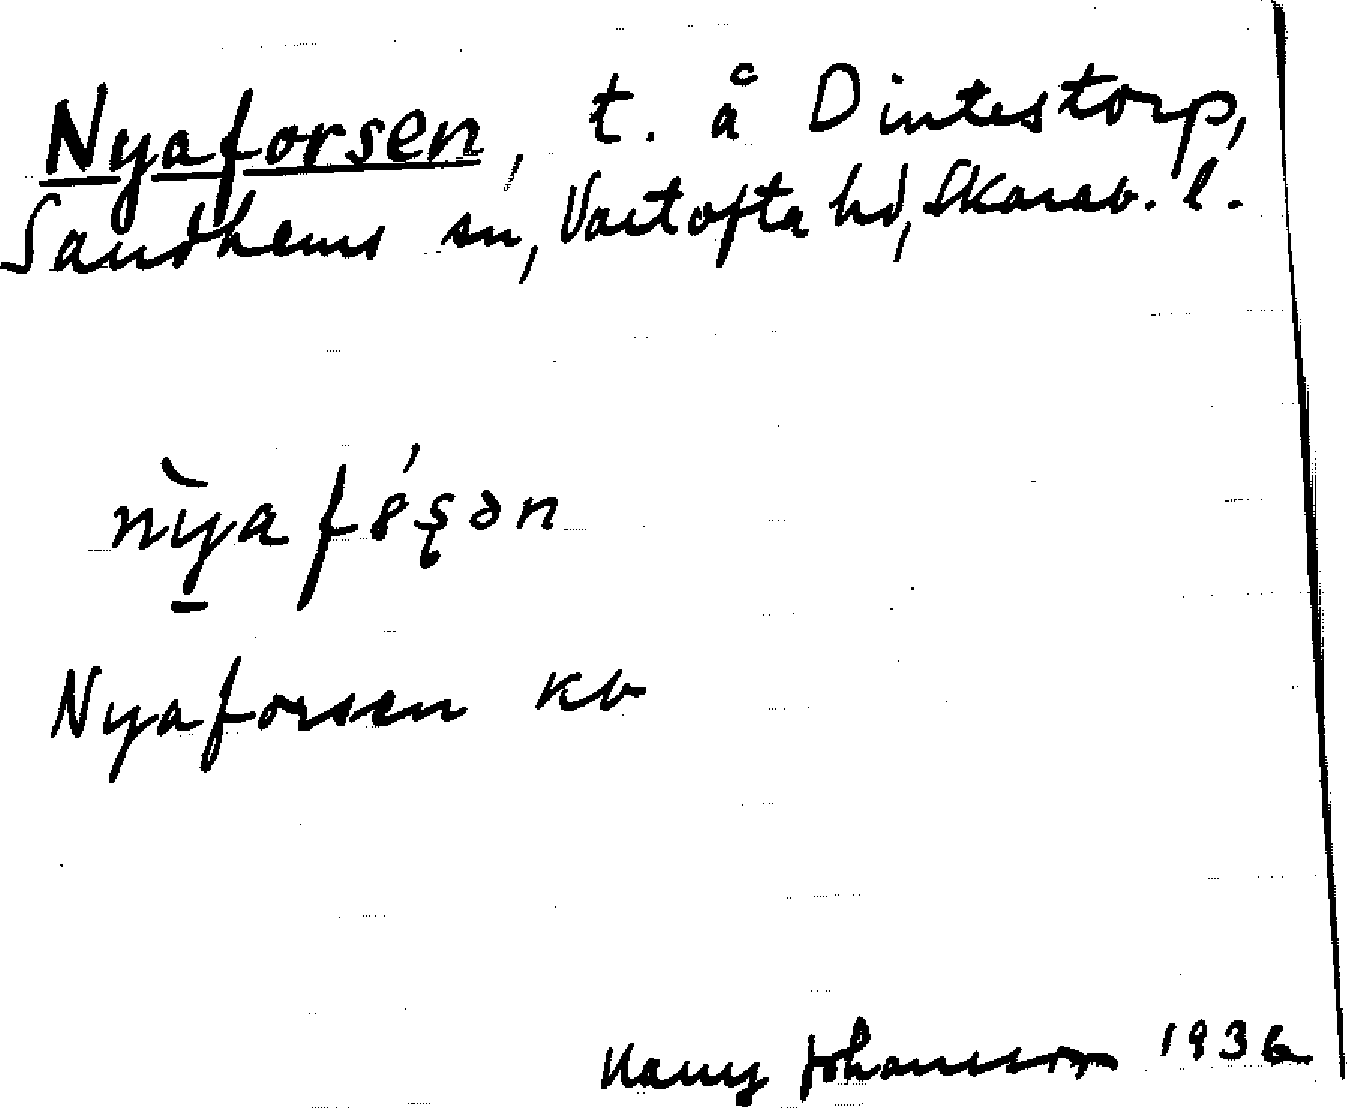 Nyaforsen, t. å Dintestorp,
Sandhems sn, Vartofta hd, Skarab. l.
Nyaforsen kb
Johansson 1936